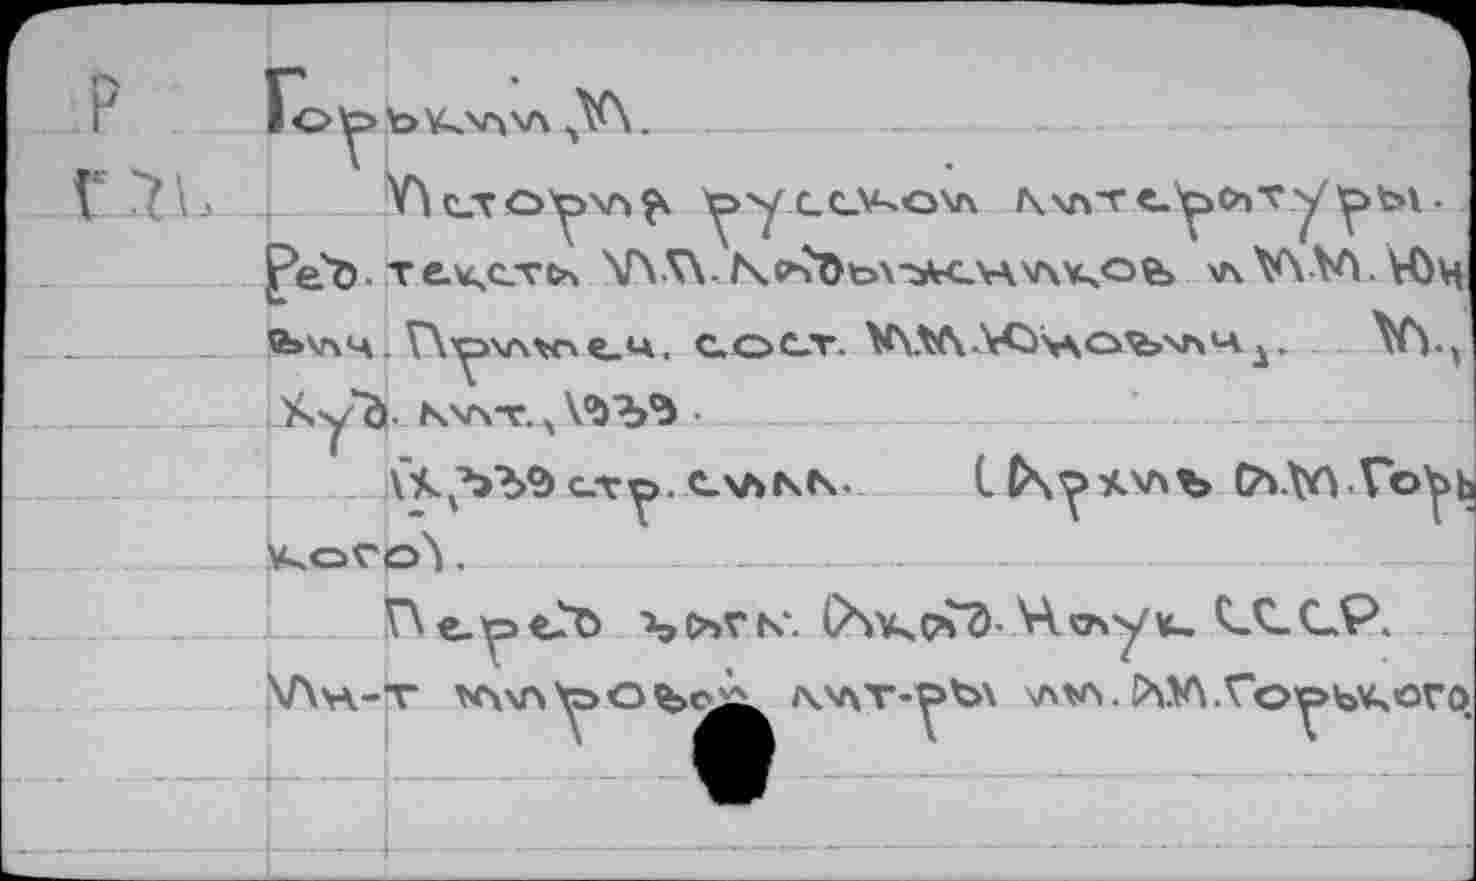 Р Горький, М.
Г71. История русской литературы.
Ред. текста И.П. Ладыжникова и М.М. Юн
вич. Примеч. сост. М.М. Юнович, М.,
Худ. лит., 1939.
IX, 339 стр. с илл. (Архив А.М. Горь
кого).
Перед загл: Акад. Наук СССР.
Ин-т мировой лит-ры им. А.М. Горького.